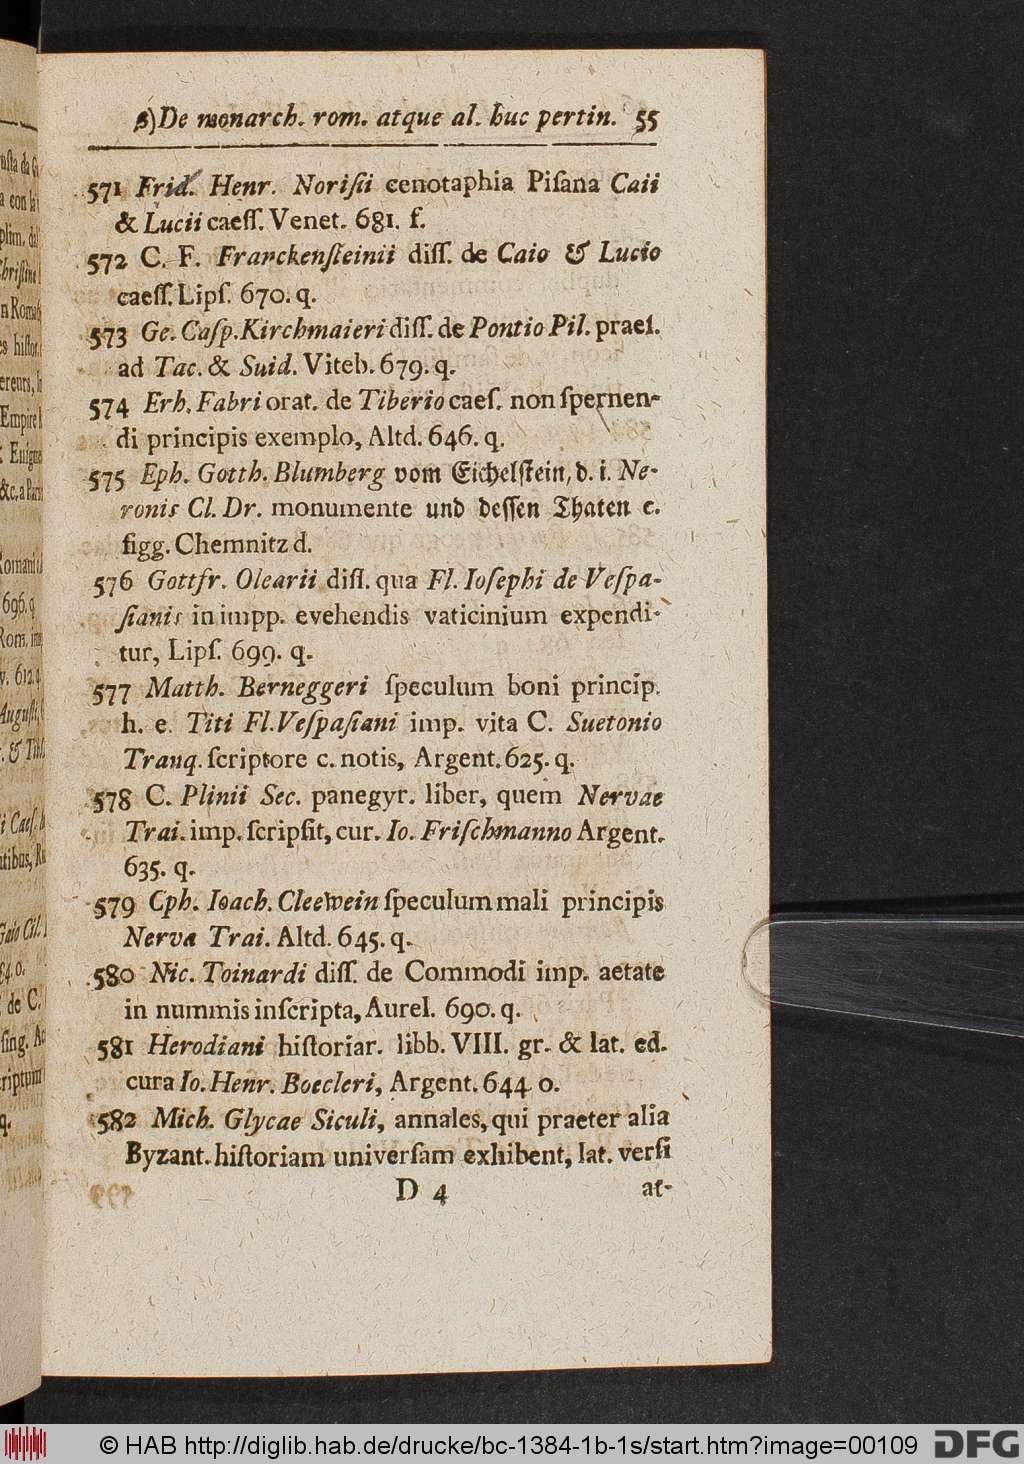 β) De monarch. rom. atque al. huc pertin. 55
571 Frid. Henr. Noriſii cenotaphia Piſana Caii
& Lucii caeſſ. Venet. 681. f.
572 C. F. Franckenſteinii diſſ. de Caio & Lucio
caeſſ. Lipſ. 670. q.
573 Ge. Caſp. Kirchmaieri diſſ. de Pontio Pil. praeſ.
ad Tac. & Suid. Viteb. 679. q.
574 Erh. Fabri orat. de Tiberio caeſ. non ſpernen-
di principis exemplo, Altd. 646. q.
575 Eph. Gotth. Blumberg vom Eichelſtein, d. i. Ne-
ronis Cl. Dr. monumente und deſſen Thaten c.
figg. Chemnitz d.
576 Gottfr. Olearii diſſ. qua Fl. Ioſephi de Veſpa-
ſianis in impp. evehendis vaticinium expendi-
tur, Lipſ. 699. q.
577 Matth. Berneggeri ſpeculum boni princip.
h. e. Titi Fl. Veſpaſiani imp. vita C. Suetonio
Tranq. ſcriptore c. notis, Argent. 625. q.
578 C. Plinii Sec. panegyr. liber, quem Nervae
Trai. imp. ſcripſit, cur. Io. Friſchmanno Argent.
635. q.
579 Cph. Ioach. Cleewein ſpeculum mali principis
Nerva Trai. Altd. 645. q.
580 Nic. Toinardi diſſ. de Commodi imp. aetate
in nummis inſcripta, Aurel. 690. q.
581 Herodiani hiſtoriar. libb. VIII. gr. & lat. ed.
cura Io. Henr. Boecleri, Argent. 644 o.
582 Mich. Glycae Siculi, annales, qui praeter alia
Byzant. hiſtoriam univerſam exhibent, lat. verſi
D 4 at-
© HAB http://diglib.hab.de/drucke/bc-1384-1b-1s/start.htm?image=00109 DFG